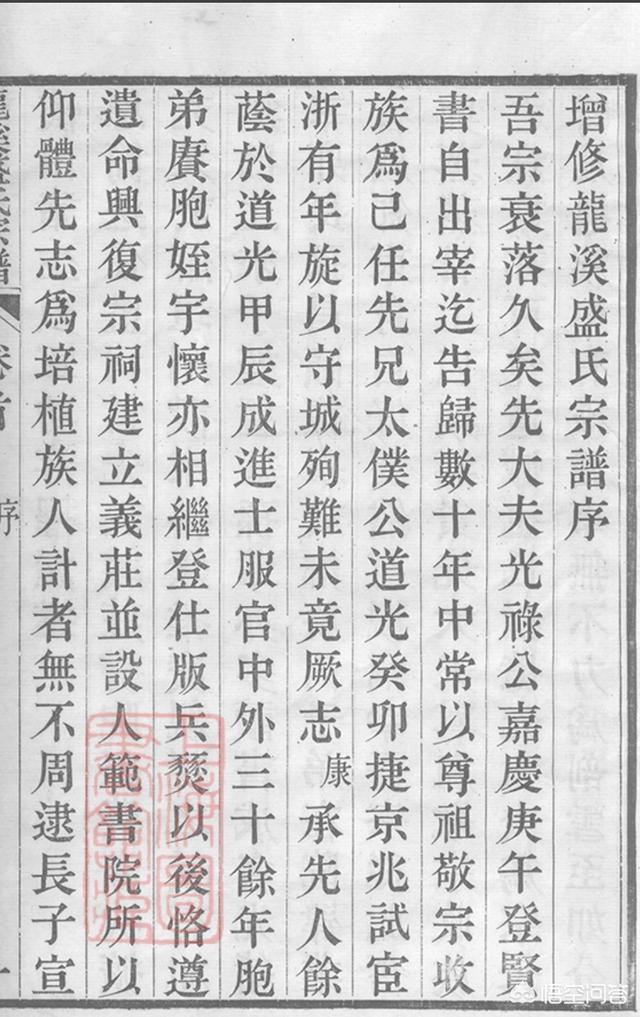 增修龍溪盛氏宗譜序
吾宗衰落久矣先大夫光祿公嘉慶庚午登賢
書自出宰迄告歸數十年中常以尊祖敬宗收
族爲己任先兄太僕公道光癸卯捷京兆試宦
浙有年旋以守城殉難未竟厥志康承先人餘
蔭於道光甲辰成進士服官中外三十餘年胞
弟賡胞姪宇懷亦相繼登仕版兵燹以後恪遵
遺命興復宗祠建立義莊並設人範書院所以
仰體先志爲培植族人計者無不周逮長子宣
龍溪盛氏宗譜
卷首
序
一
悟空问答